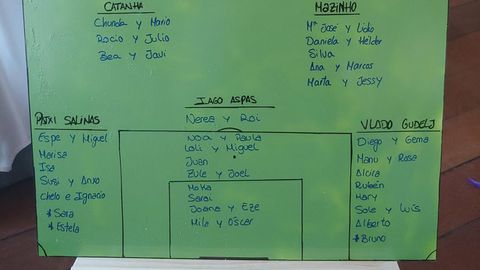 CATANHA
Chunda y Mario
Rocio y Julio
Bea y Javi
MAZINHO
Mª José y Lisko
Daniela y Hélder
Silva
Ana y Marcos
Marta y Jessy
IAGO ASPAS
Nerea y Roi
Noa y Paula
Loli y Miguel
Juan
Zule y Joel
Moka
Sarai
Joana y Eze
Mila y Oscar
PATXI SALINAS
Espe y Miguel
Marisa
Isa
Susi y Anxo
Chelo e Ignacio
* Sara
* Estela
VLADO GUDELJ
Diego y Gema
Manu y Rosa
Alcira
Rubén
Mary
Sole y Luís
Alberto
* Bruno